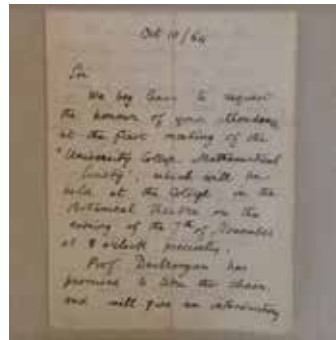 Oct 10/64
Sir
We beg leave to request
the honour of your attendance
at the first meeting of the
"University College Mathematical
Society", which will be
held at the College in the
Botanical Theatre on the
evening of the 7th of November
at 8 o'clock precisely.
Prof. De Morgan has
promised to take the chair
and will give an introductory